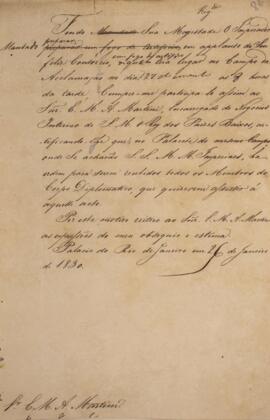 Tendo Sua Magestade O Imperador
Mandado preparar
um fogo de artificio em applauso do Seu
feliz Consorcio, que terá lugar no Campo da
Acclamação no dia do corrente as horas
da tarde Cumpre-me participa-lo assim ao
Snr. C. M. A. Martini, Encarregado de Negocios
Interino de S. M. o Rey dos Paizes Baixos,
que no Palacete do mesmo Campo
onde se acharão S. S. M. M. Imperiaes, ha
ordem para serem recebidos todos os Membros do
Corpo Diplomatico, que quizerem assistir á
aquelle acto.
Por esta occasião reitero ao Snr. C. M. A. Martini
as expressões de meu obsequio e estima.
Palacio do Rio de Janeiro em 26 de Janeiro
de 1830.
Sr. C. M. A. Martini